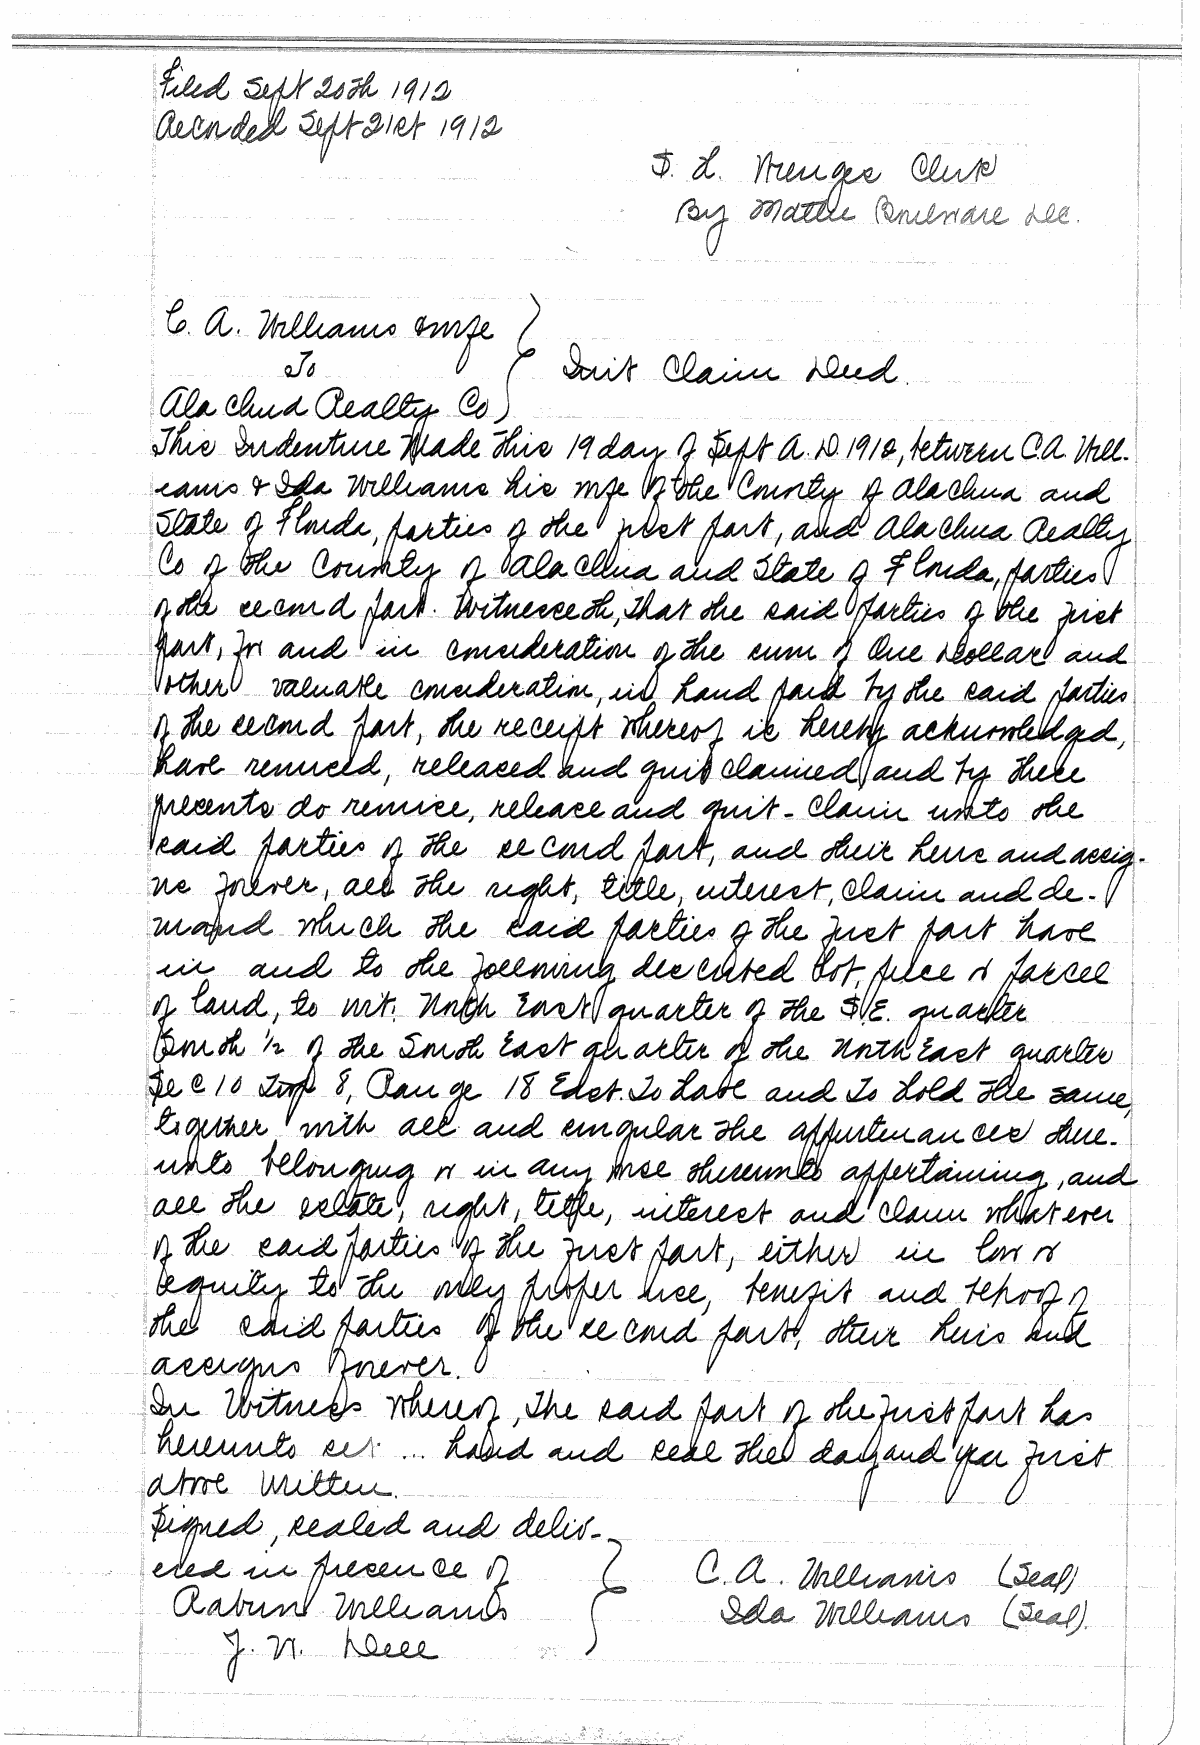 Filed Sept 20th 1912
Recorded Sept 21st 1912
S. H. Wienges Clerk
By Mattie Boulware D.C.
C. A. Williams & wife
To
Quit Claim Deed.
Alachua Realty Co
This Indenture Made this 19 day of Sept A. D. 1912, between C.A. Will-
iams & Ida Williams his wife of the County of Alachua and
State of Florida, parties of the first part, and Alachua Realty
Co of the County of Alachua and State of Florida, parties
of the second part. Witnesseth, That the said parties of the first
part, for and in consideration of the sum of One Dollar and
other valuable consideration, in hand paid by the said parties
of the second part, the receipt whereof is hereby acknowledged,
have remised, released and quit claimed, and by these
presents do remise, release and quit-claim unto the
said parties of the second part, and their heirs and assig-
ns forever, all the right, title, interest, claim and de-
mand which the said parties of the first part have
in and to the following described lot, piece or parcel
of land, to wit: North East quarter of the S.E. quarter
South 1/2 of the South East quarter of the North East quarter
Sec 10 Twp 8, Range 18 East. To have and To hold the same,
together with all and singular the appurtenances there-
unto belonging or in any wise thereunto appertaining, and
all the estate, right, title, interest and claim whatever
of the said parties of the first part, either in law or
equity to the only proper use, benefit and behoof of
the said parties of the second part, their heirs and
assigns forever.
In Witness whereof, The said part of the first part has
hereunto set ... hand and seal the day and year first
above written.
Signed, sealed and deliv-
ered in presence of
C. A. Williams (Seal)
Rabun Williams
Ida Williams (Seal).
J. N. Dell